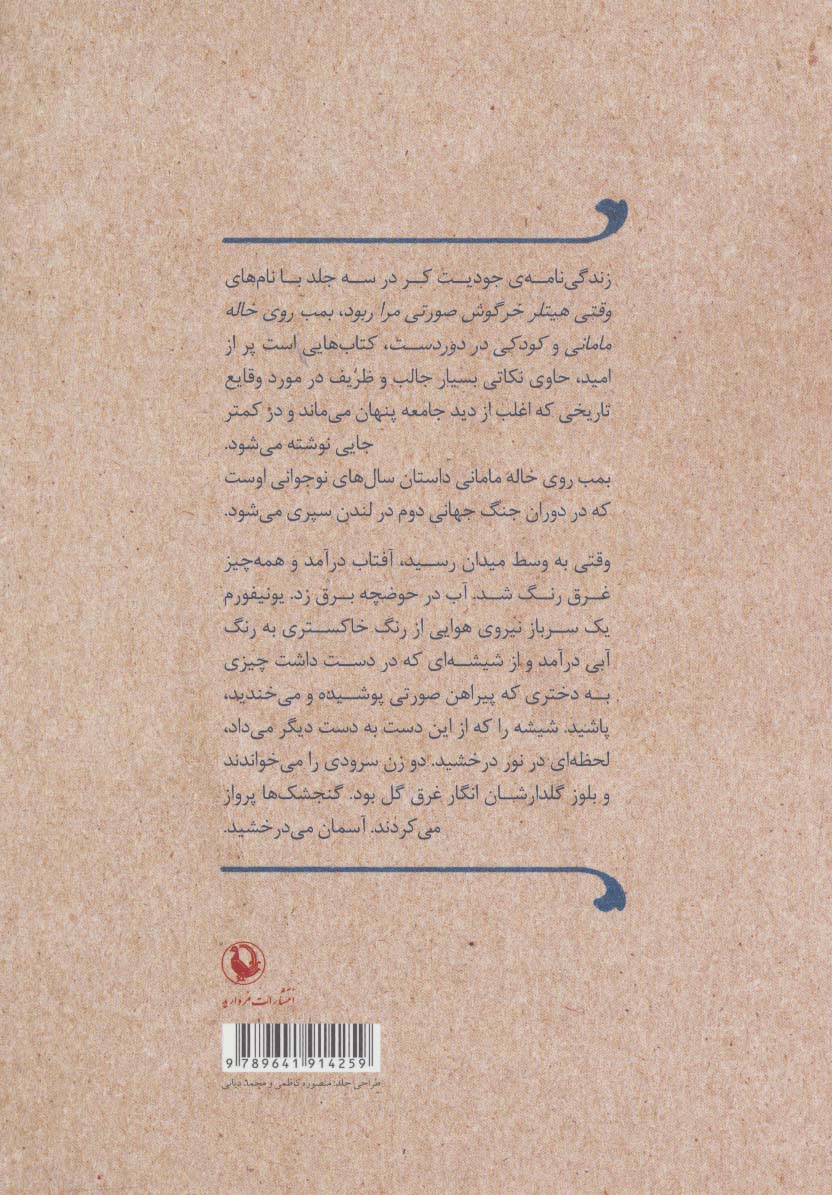 زندگی‌نامه‌ی جودیت کر در سه جلد با نام‌های
وقتی هیتلر خرگوش صورتی مرا ربود، بمب روی خاله
مامانی و کودکی در دوردست، کتاب‌هایی است پر از
امید، حاوی نکاتی بسیار جالب و ظریف در مورد وقایع
تاریخی که اغلب از دید جامعه پنهان می‌ماند و در کمتر
جایی نوشته می‌شود.
بمب روی خاله مامانی داستان سال‌های نوجوانی اوست
که در دوران جنگ جهانی دوم در لندن سپری می‌شود.
وقتی به وسط میدان رسید، آفتاب درآمد و همه‌چیز
غرق رنگ شد. آب در حوضچه برق زد. یونیفورم
یک سرباز نیروی هوایی از رنگ خاکستری به رنگ
آبی درآمد و از شیشه‌ای که در دست داشت چیزی
به دختری که پیراهن صورتی پوشیده و می‌خندید،
پاشید. شیشه را که از این دست به دست دیگر می‌داد،
لحظه‌ای در نور درخشید. دو زن سرودی را می‌خواندند
و بلوز گلدارشان انگار غرق گل بود. گنجشک‌ها پرواز
می‌کردند. آسمان می‌درخشید.
انتشارات مروارید
9 789641 914259
طراحی جلد: منصوره کاظمی و محمد دیانی